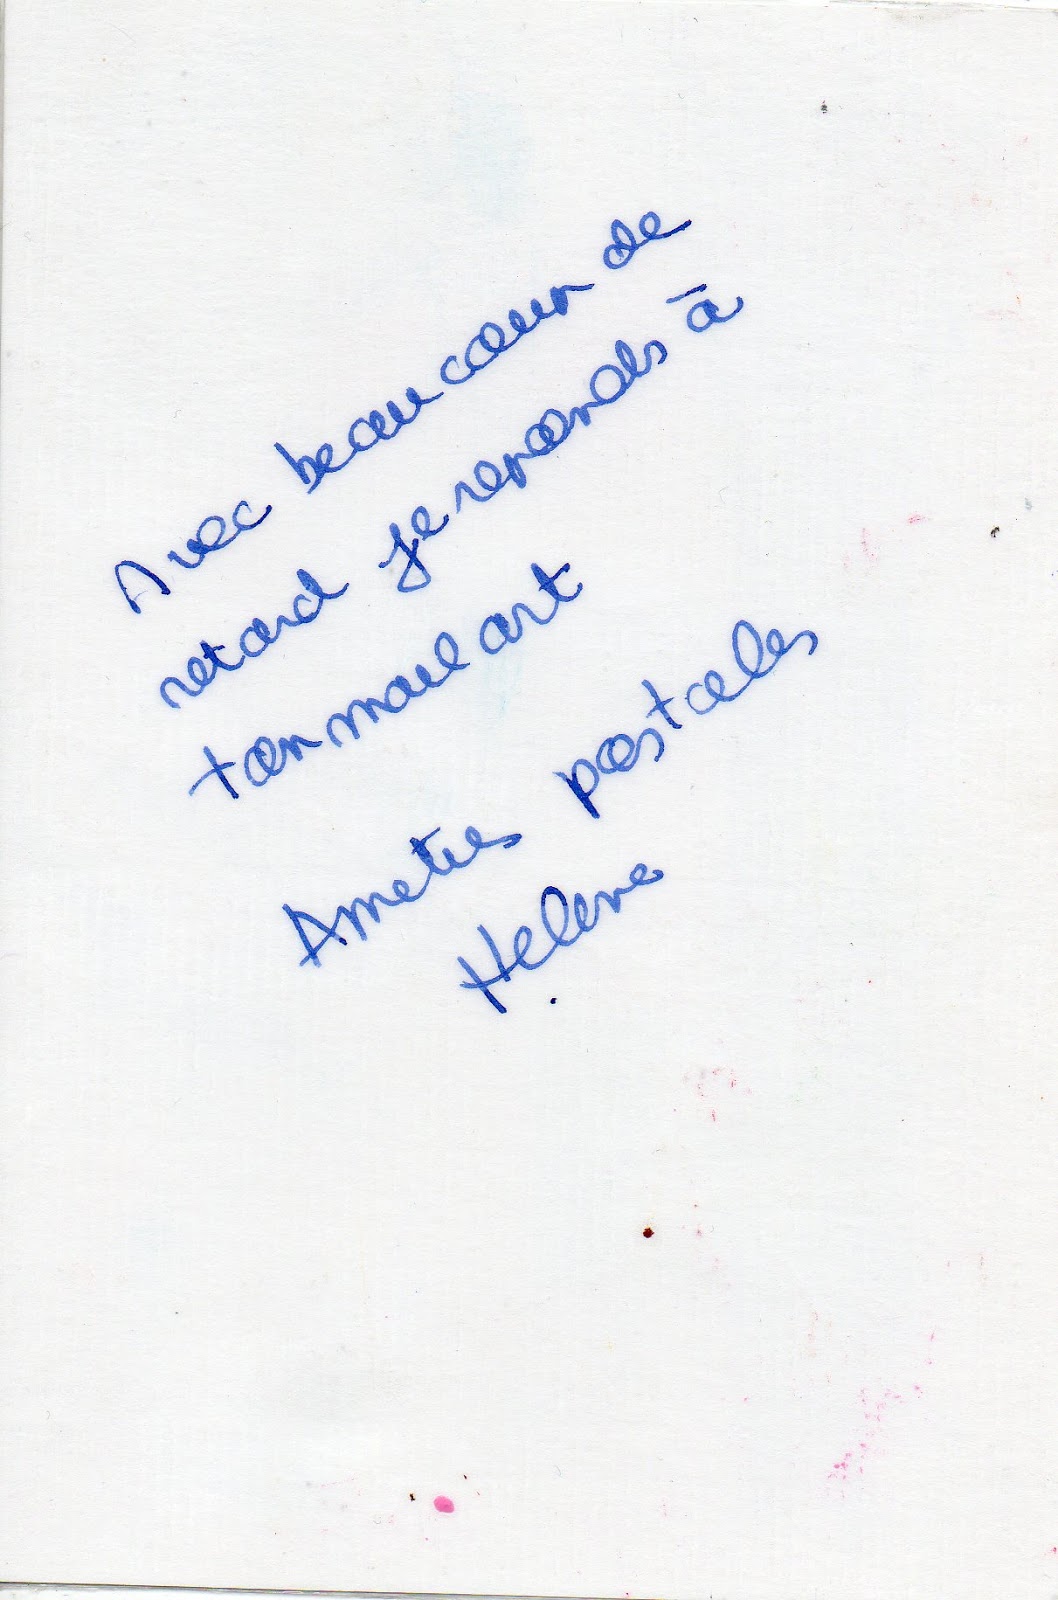 Avec beaucoup de
retard je reponds à
ton mail art
Amities postales
Helene